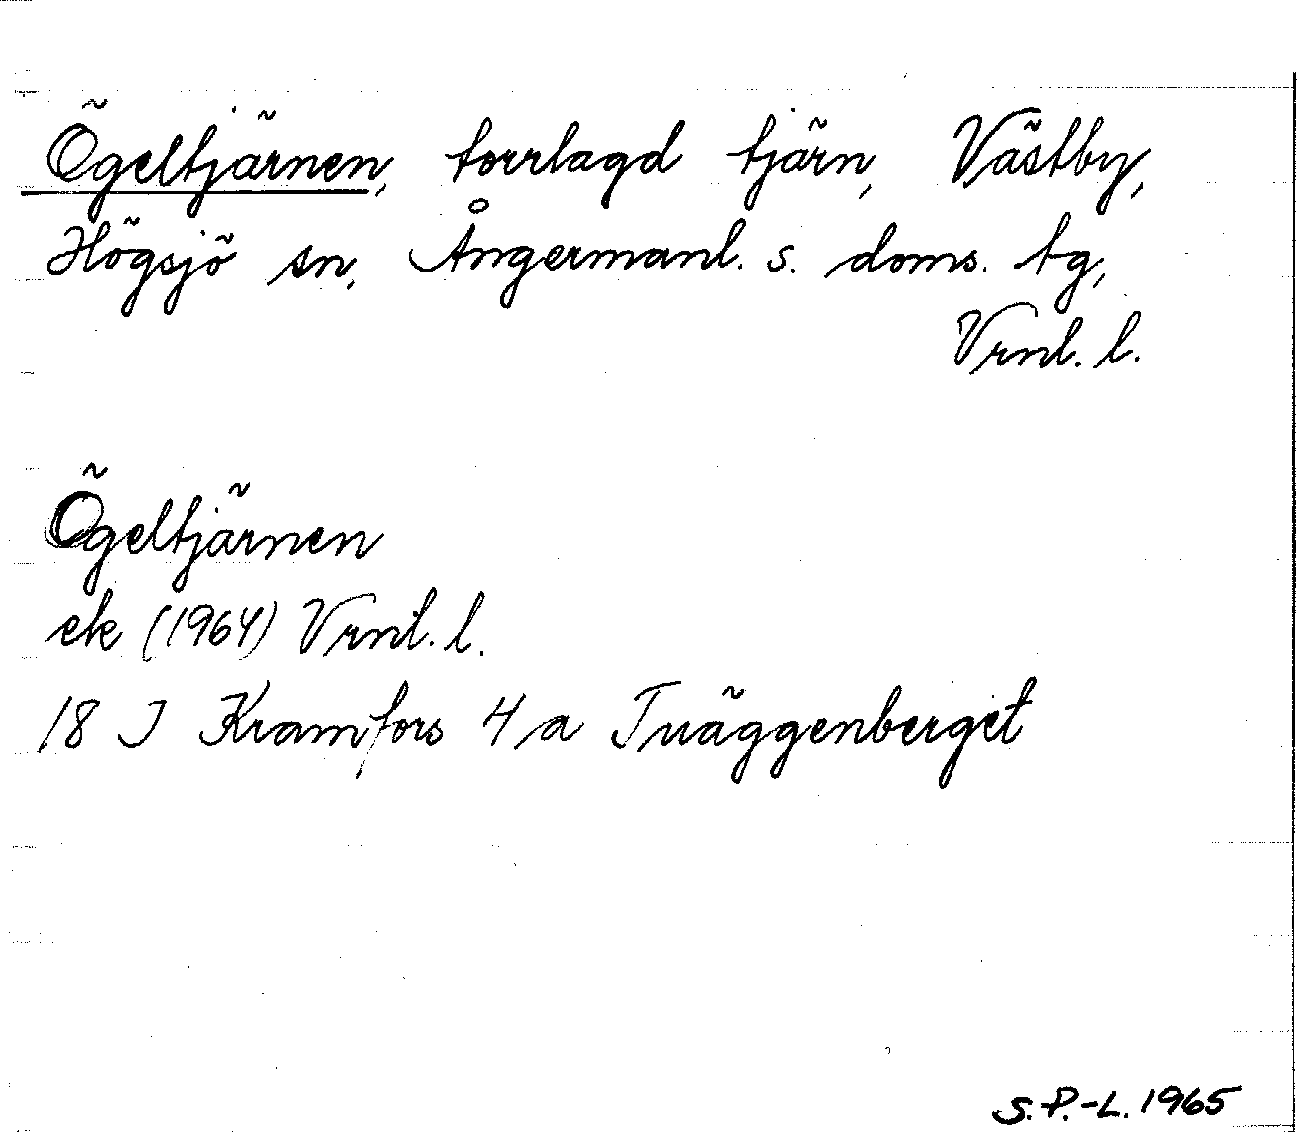 Ögeltjärnen, torrlagd tjärn, Västby,
Högsjö sn, Ångermanl. s. doms. tg,
Vrnl. l.
Ögeltjärnen
ek (1964) Vrnl. l.
18 J Kramfors 4 a Tväggenberget
S.P.-L. 1965